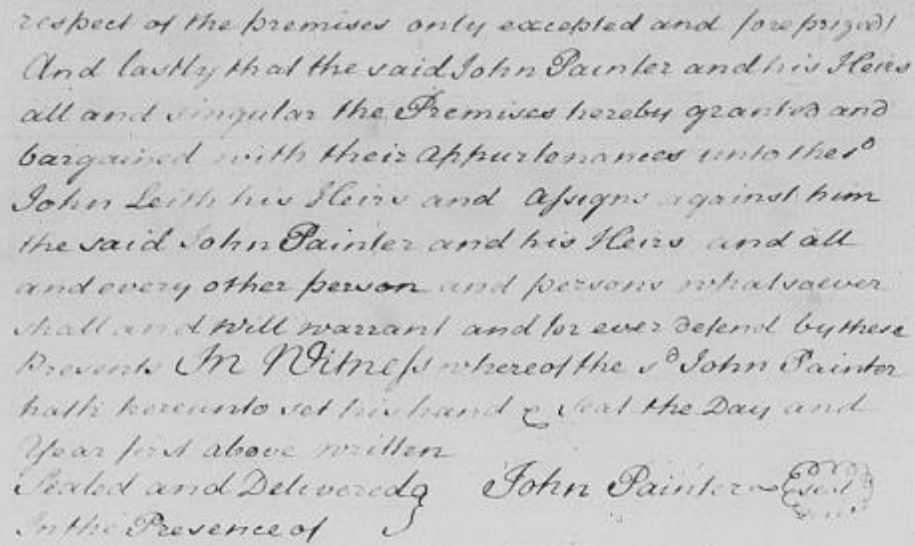 respect of the premises only excepted and foreprized
And lastly that the said John Painter and his Heirs
all and singular the Premises hereby granted and
bargained with their Appurtenances unto the sd
John Leith his Heirs and Assigns against him
the said John Painter and his Heirs and all
and every other person and persons whatsoever
shall and will warrant and for ever defend by these
Presents In Witness whereof the sd John Painter
hath hereunto set his hand & Seal the Day and
Year first above written
Sealed and Delivered } John Painter seal
In the Presence of